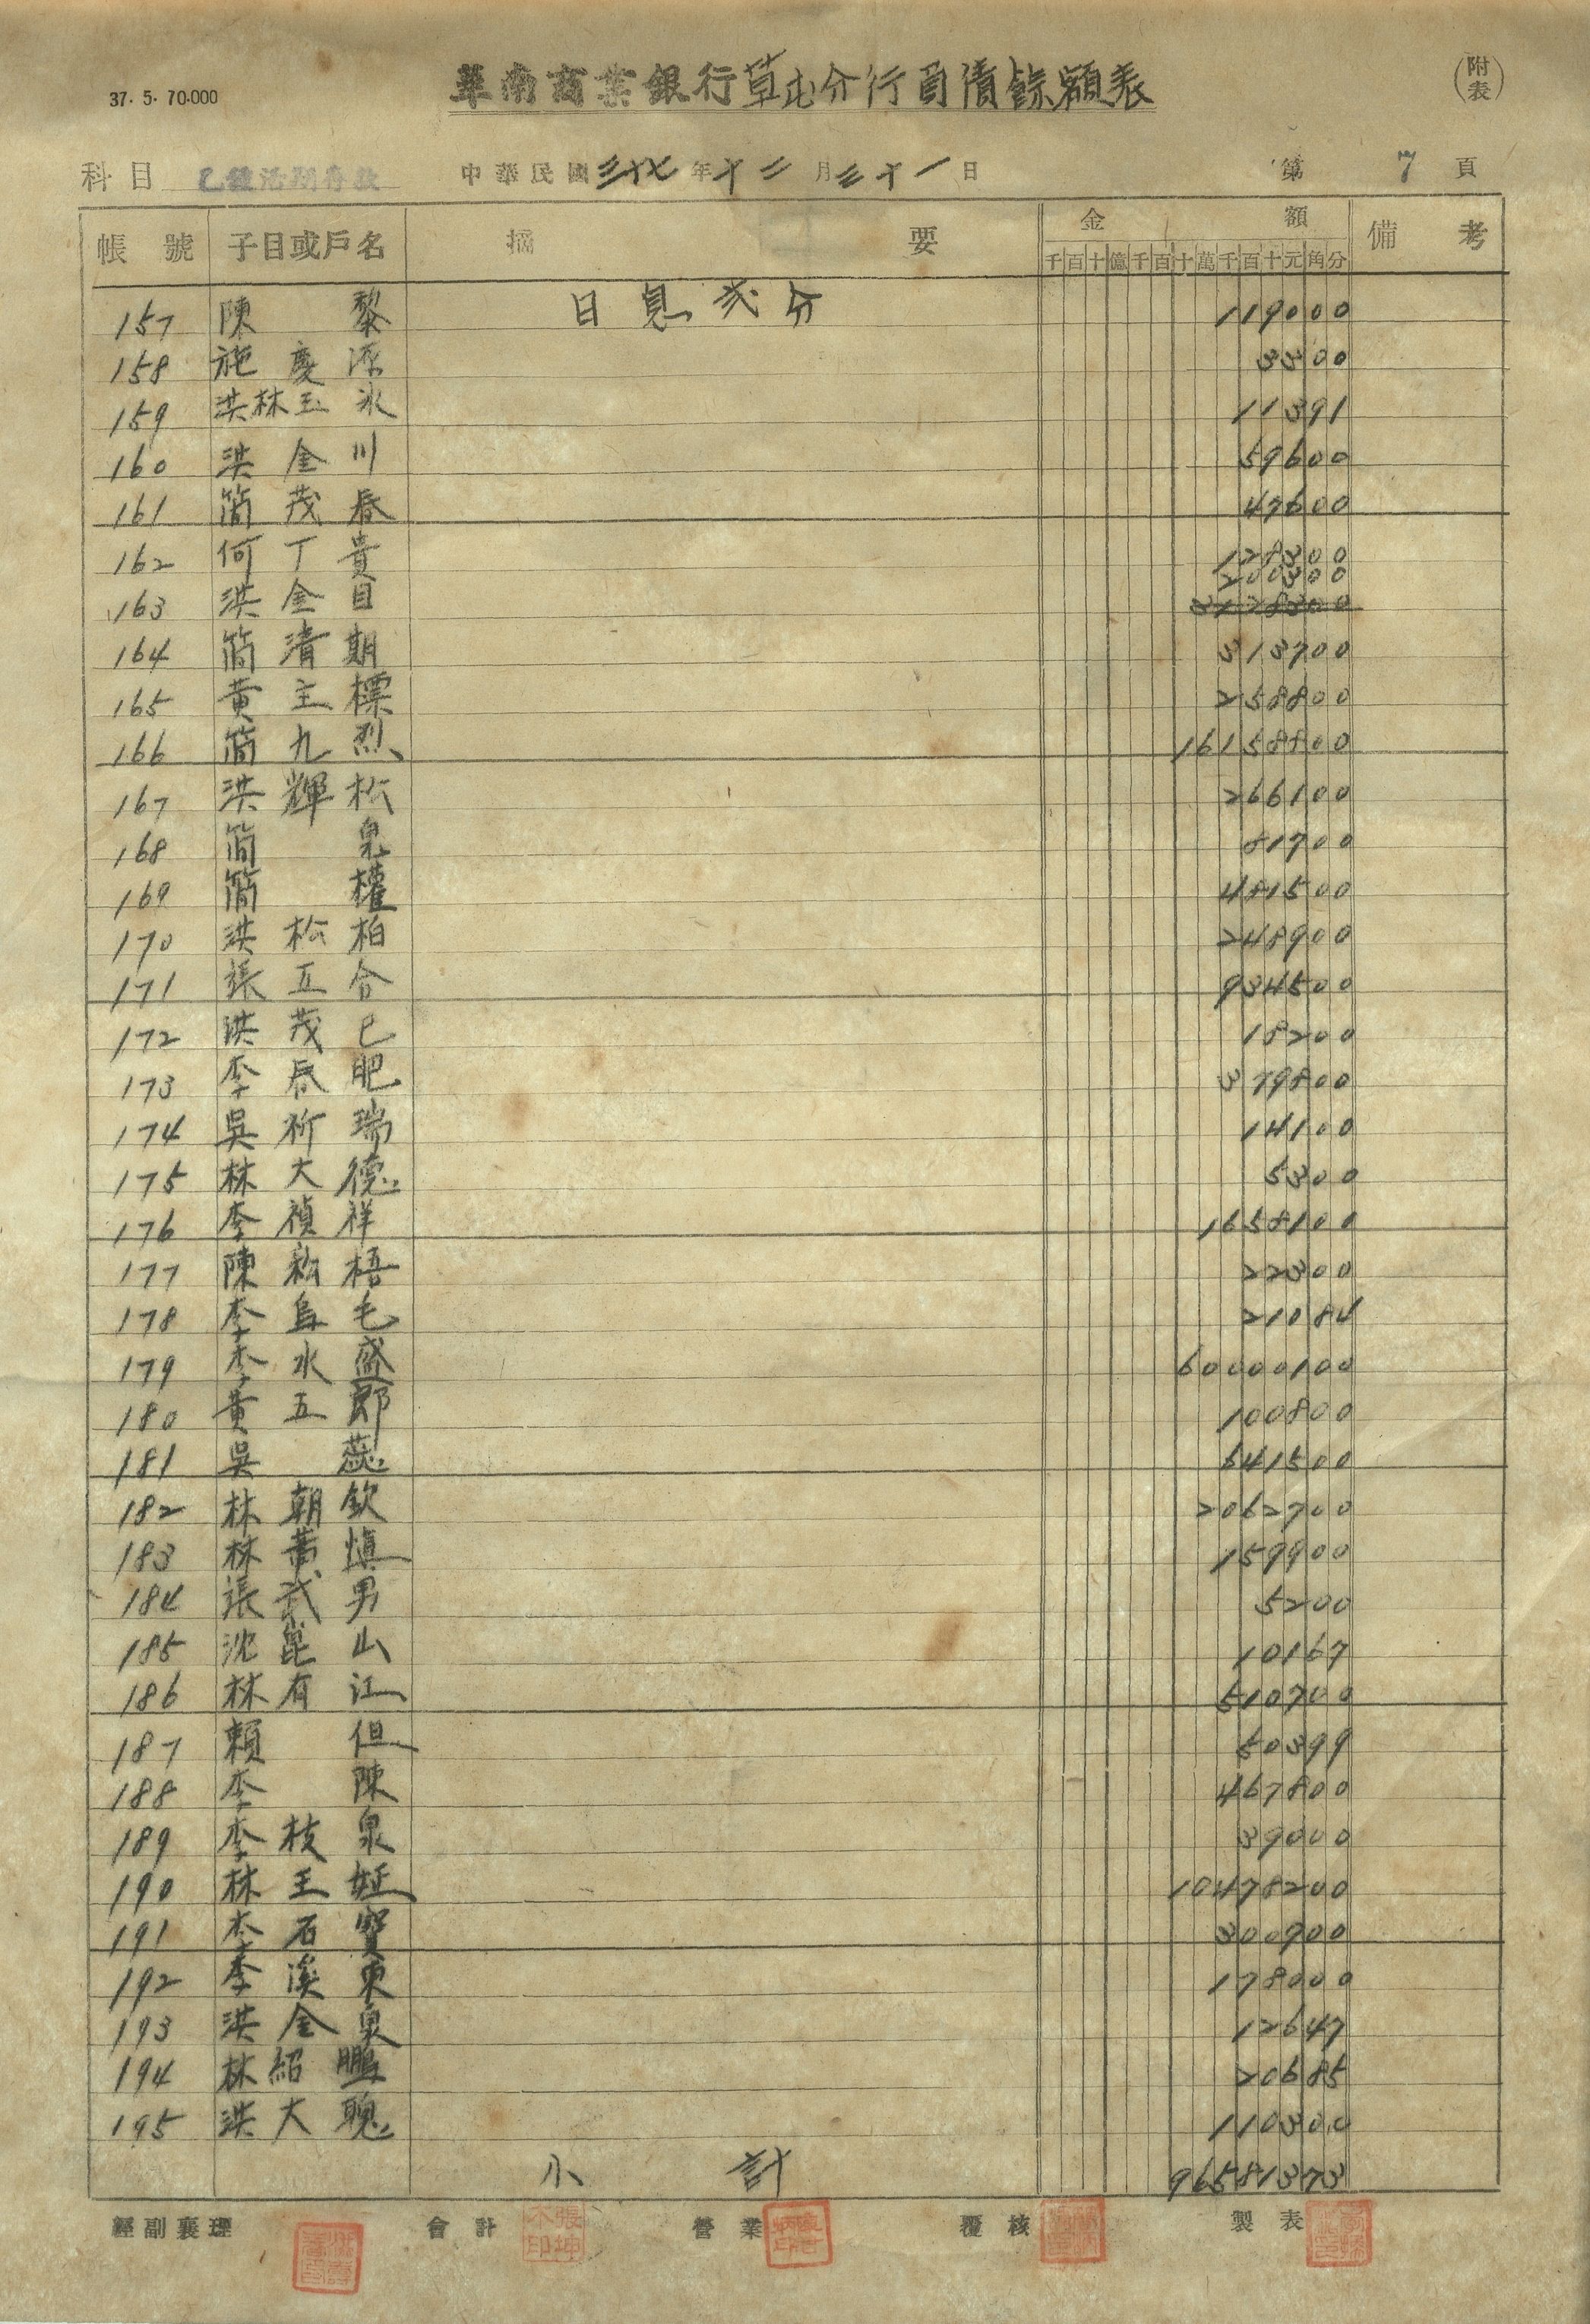 37. 5. 70.000
華南商業銀行草屯分行負債餘額表
(附表)
科目 乙種活期存款 中華民國三十七年十二月三十一日 第 7 頁
帳號 子目或戶名 摘要 金額 備考
千百十億千百十萬千百十元角分
157 陳黎 日息弍分 119000
158 施慶源 3300
159 洪林玉冰 11391
160 洪金川 59600
161 簡茂春 47600
162 何丁貴 128300
200300
163 洪金目 3128300
164 簡清期 313700
165 黃主標 258800
166 簡九烈 16158800
167 洪輝松 266100
168 簡泉 81700
169 簡權 481500
170 洪松柏 248900
171 張五合 934500
172 洪茂巳 18200
173 李辰肥 379800
174 吳祈瑞 14100
175 林大德 5300
176 李禎祥 1658100
177 陳新梧 22300
178 李烏毛 21084
179 李水盛 60000100
180 黃五郎 100800
181 吳蕊 641500
182 林朝欽 2062700
183 林黃慎 159900
184 張武男 5200
185 沈崑山 10167
186 林有江 510700
187 賴但 50399
188 李陳 467800
189 李枝泉 39000
190 林王妊 10478200
191 李石寶 300900
192 李溪東 178000
193 洪金泉 12647
194 林紹鵬 20685
195 洪大聰 110300
小計 96581373
經副襄理 會計 營業 覆核 製表